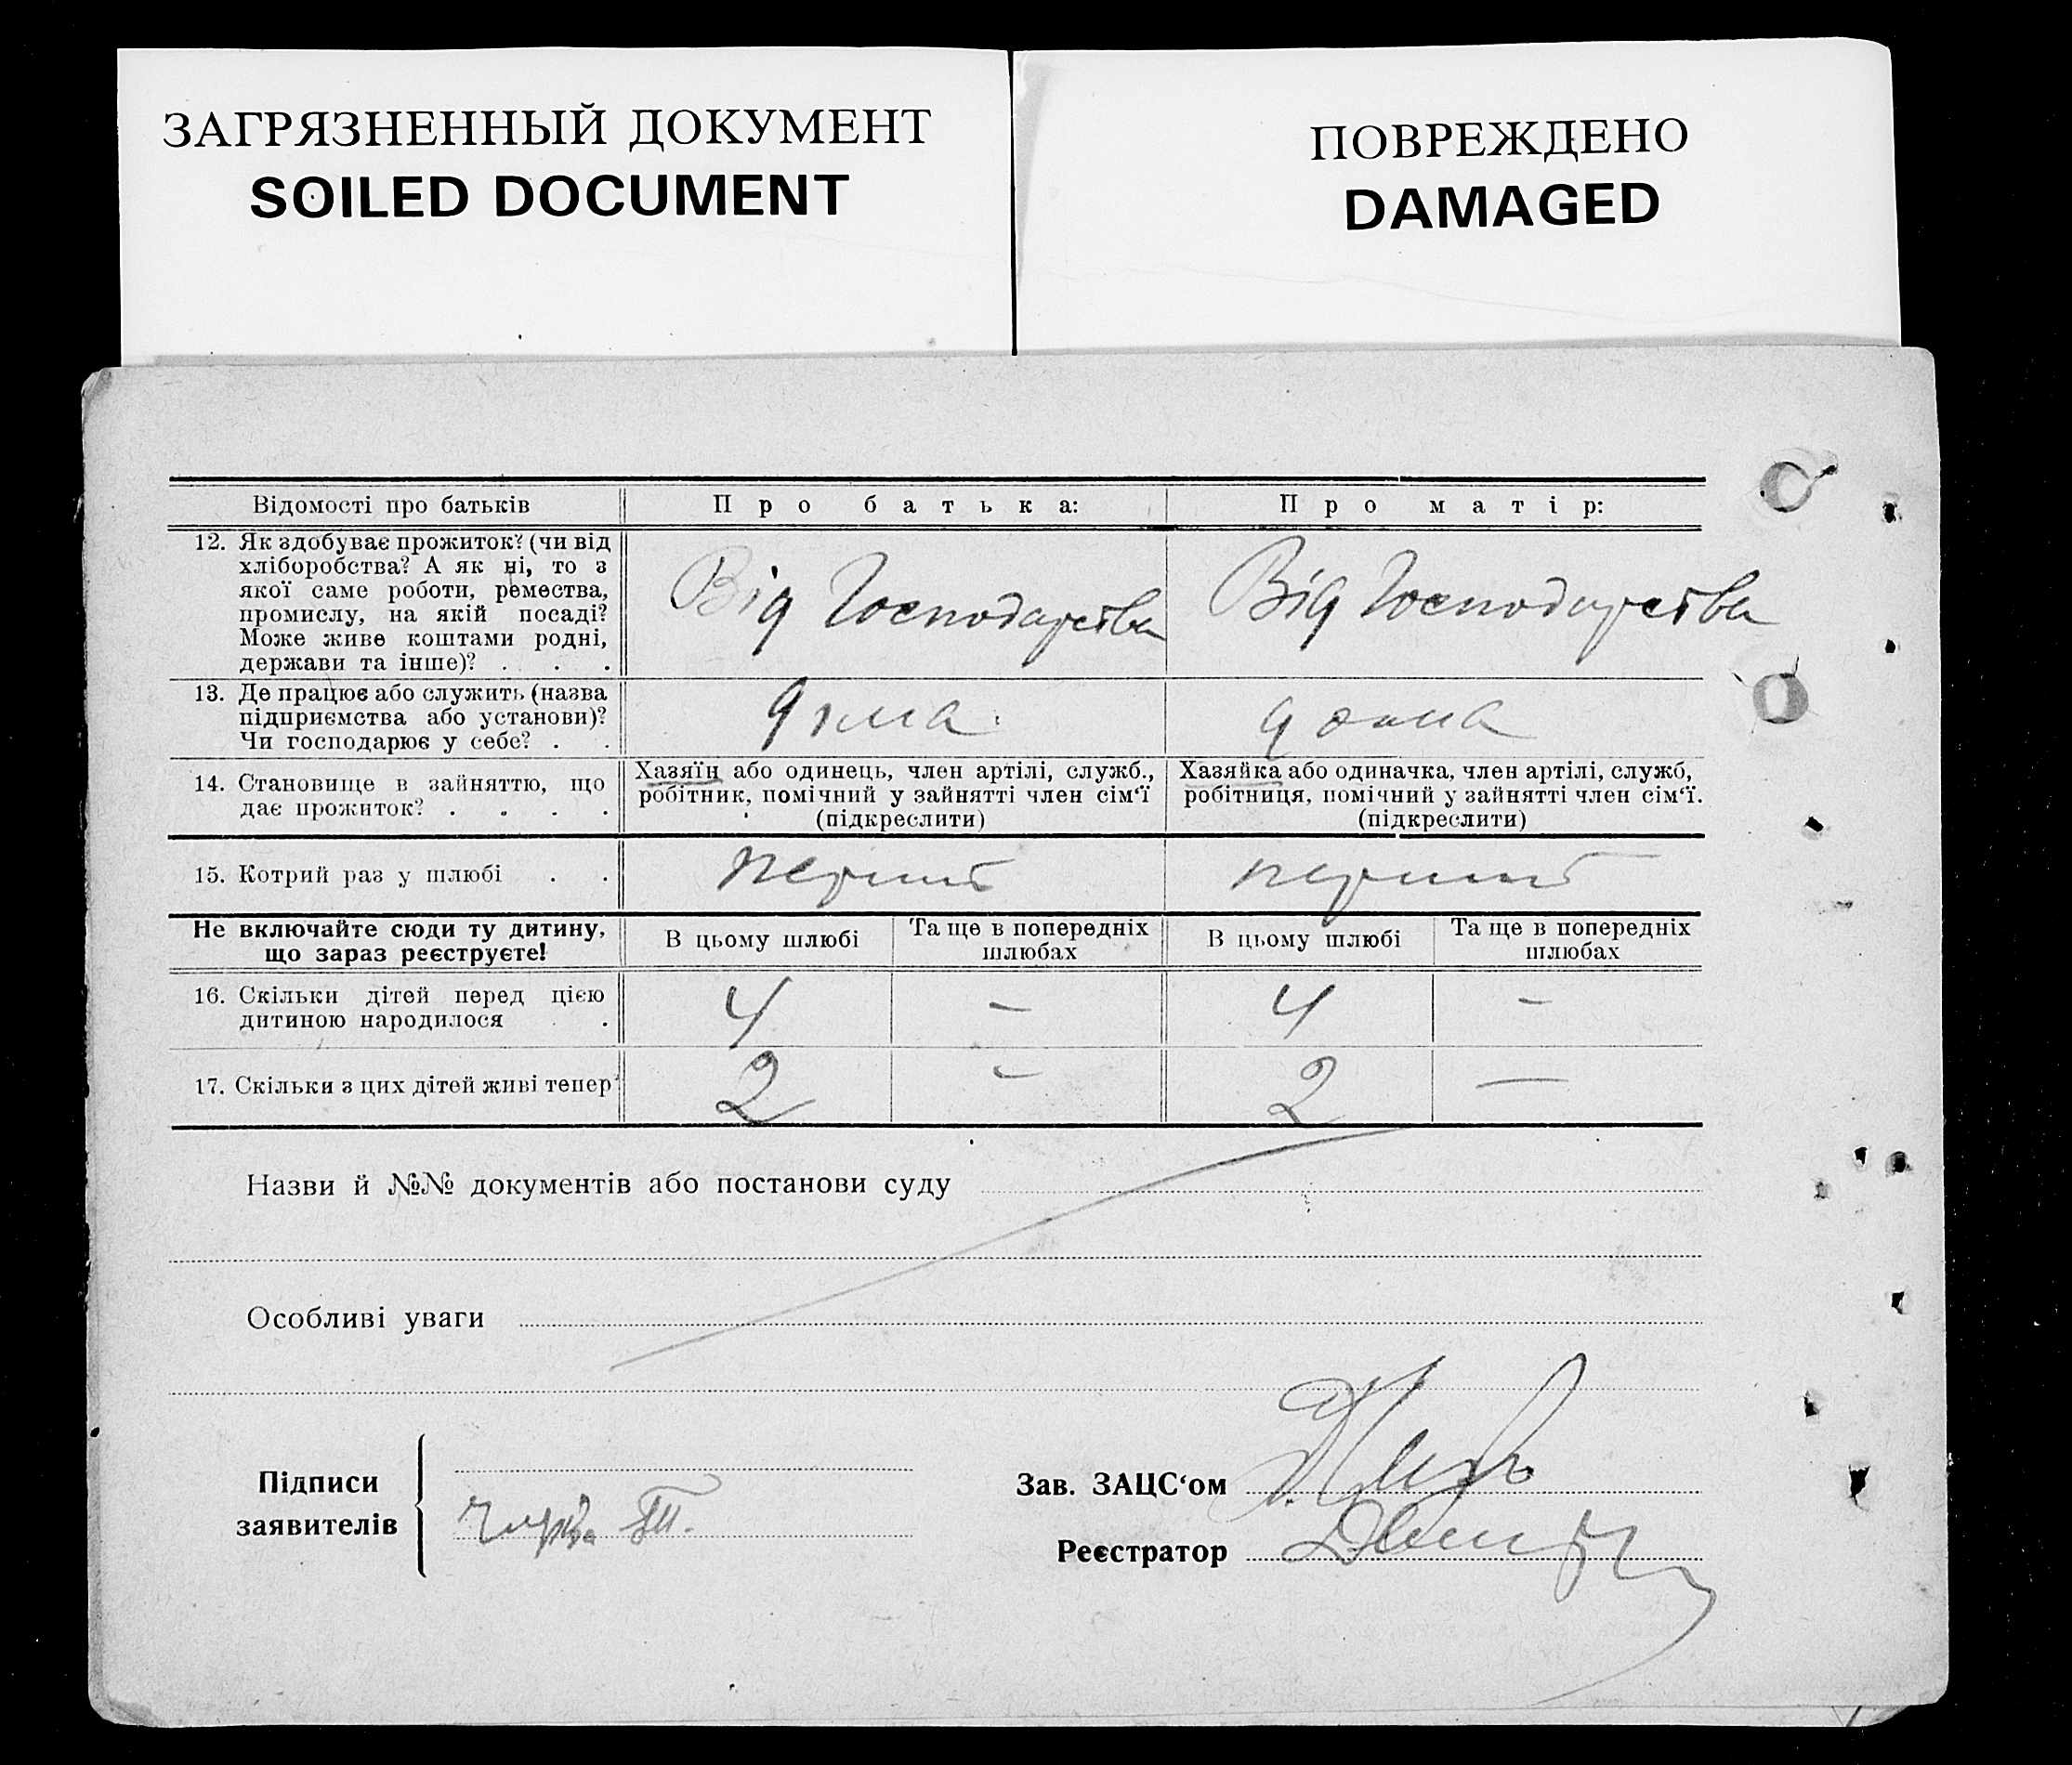 ЗАГРЯЗНЕННЫЙ ДОКУМЕНТ
SOILED DOCUMENT
ПОВРЕЖДЕНО
DAMAGED
Відомості про батьків Про батька: Про матір:
12. Як здобуває прожиток? (чи від
хліборобства? А як ні, то з
якої саме роботи, ремества,
промислу, на якій посаді?
Може живе коштами родні,
держави та інше)? . . .
Від Господарства Від Господарства
13. Де працює або служить (назва
підприємства або установи)?
Чи господарює у себе? . .
дома дома
14. Становище в зайняттю, що
дає прожиток? . . . .
Хазяїн або одинець, член артілі, служб.,
робітник, помічний у зайнятті член сім‘ї
(підкреслити)
Хазяйка або одиначка, член артілі, служб,
робітниця, помічний у зайнятті член сім‘ї.
(підкреслити)
15. Котрий раз у шлюбі . . перший перший
Не включайте сюди ту дитину,
що зараз реєструєте!
В цьому шлюбі
Та ще в попередніх
шлюбах
В цьому шлюбі
Та ще в попередніх
шлюбах
16. Скільки дітей перед цією
дитиною народилося .
4 — 4 —
17. Скільки з цих дітей живі тепер? 2 — 2 —
Назви й №№ документів або постанови суду
Особливі уваги
Підписи
заявителів
Зав. ЗАЦС‘ом
Реєстратор